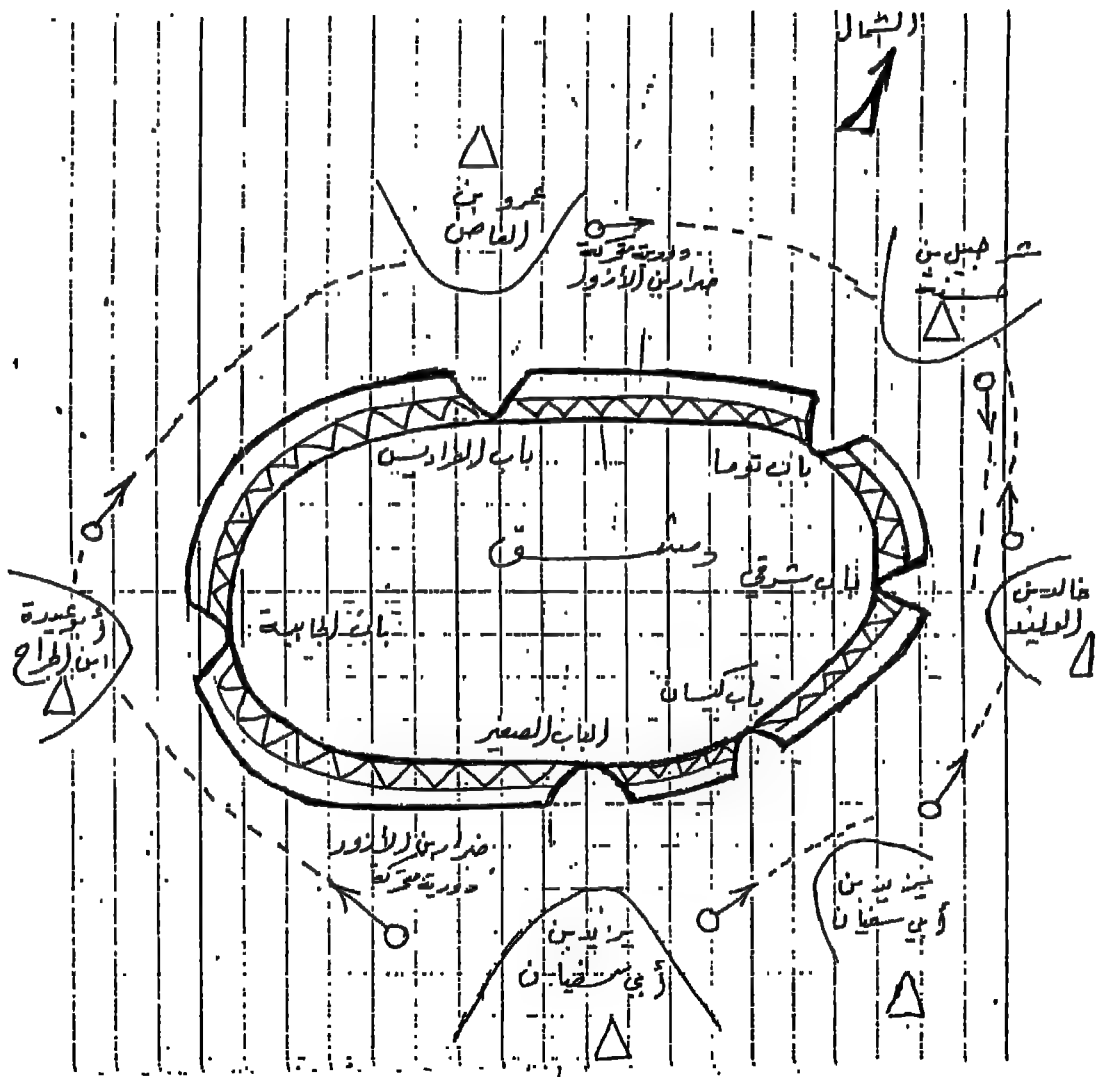 الشمال
عمرو بن
العاص
دورية متحركة
ضرار بن الأزور
شرحبيل بن
حسنة
باب الفراديس
باب توما
دمشق
باب شرقي
خالد بن
الوليد
أبو عبيدة
ابن الجراح
باب الجابية
باب كيسان
الباب الصغير
ضرار بن الأزور
دورية متحركة
يزيد بن
أبي سفيان
يزيد بن
أبي سفيان